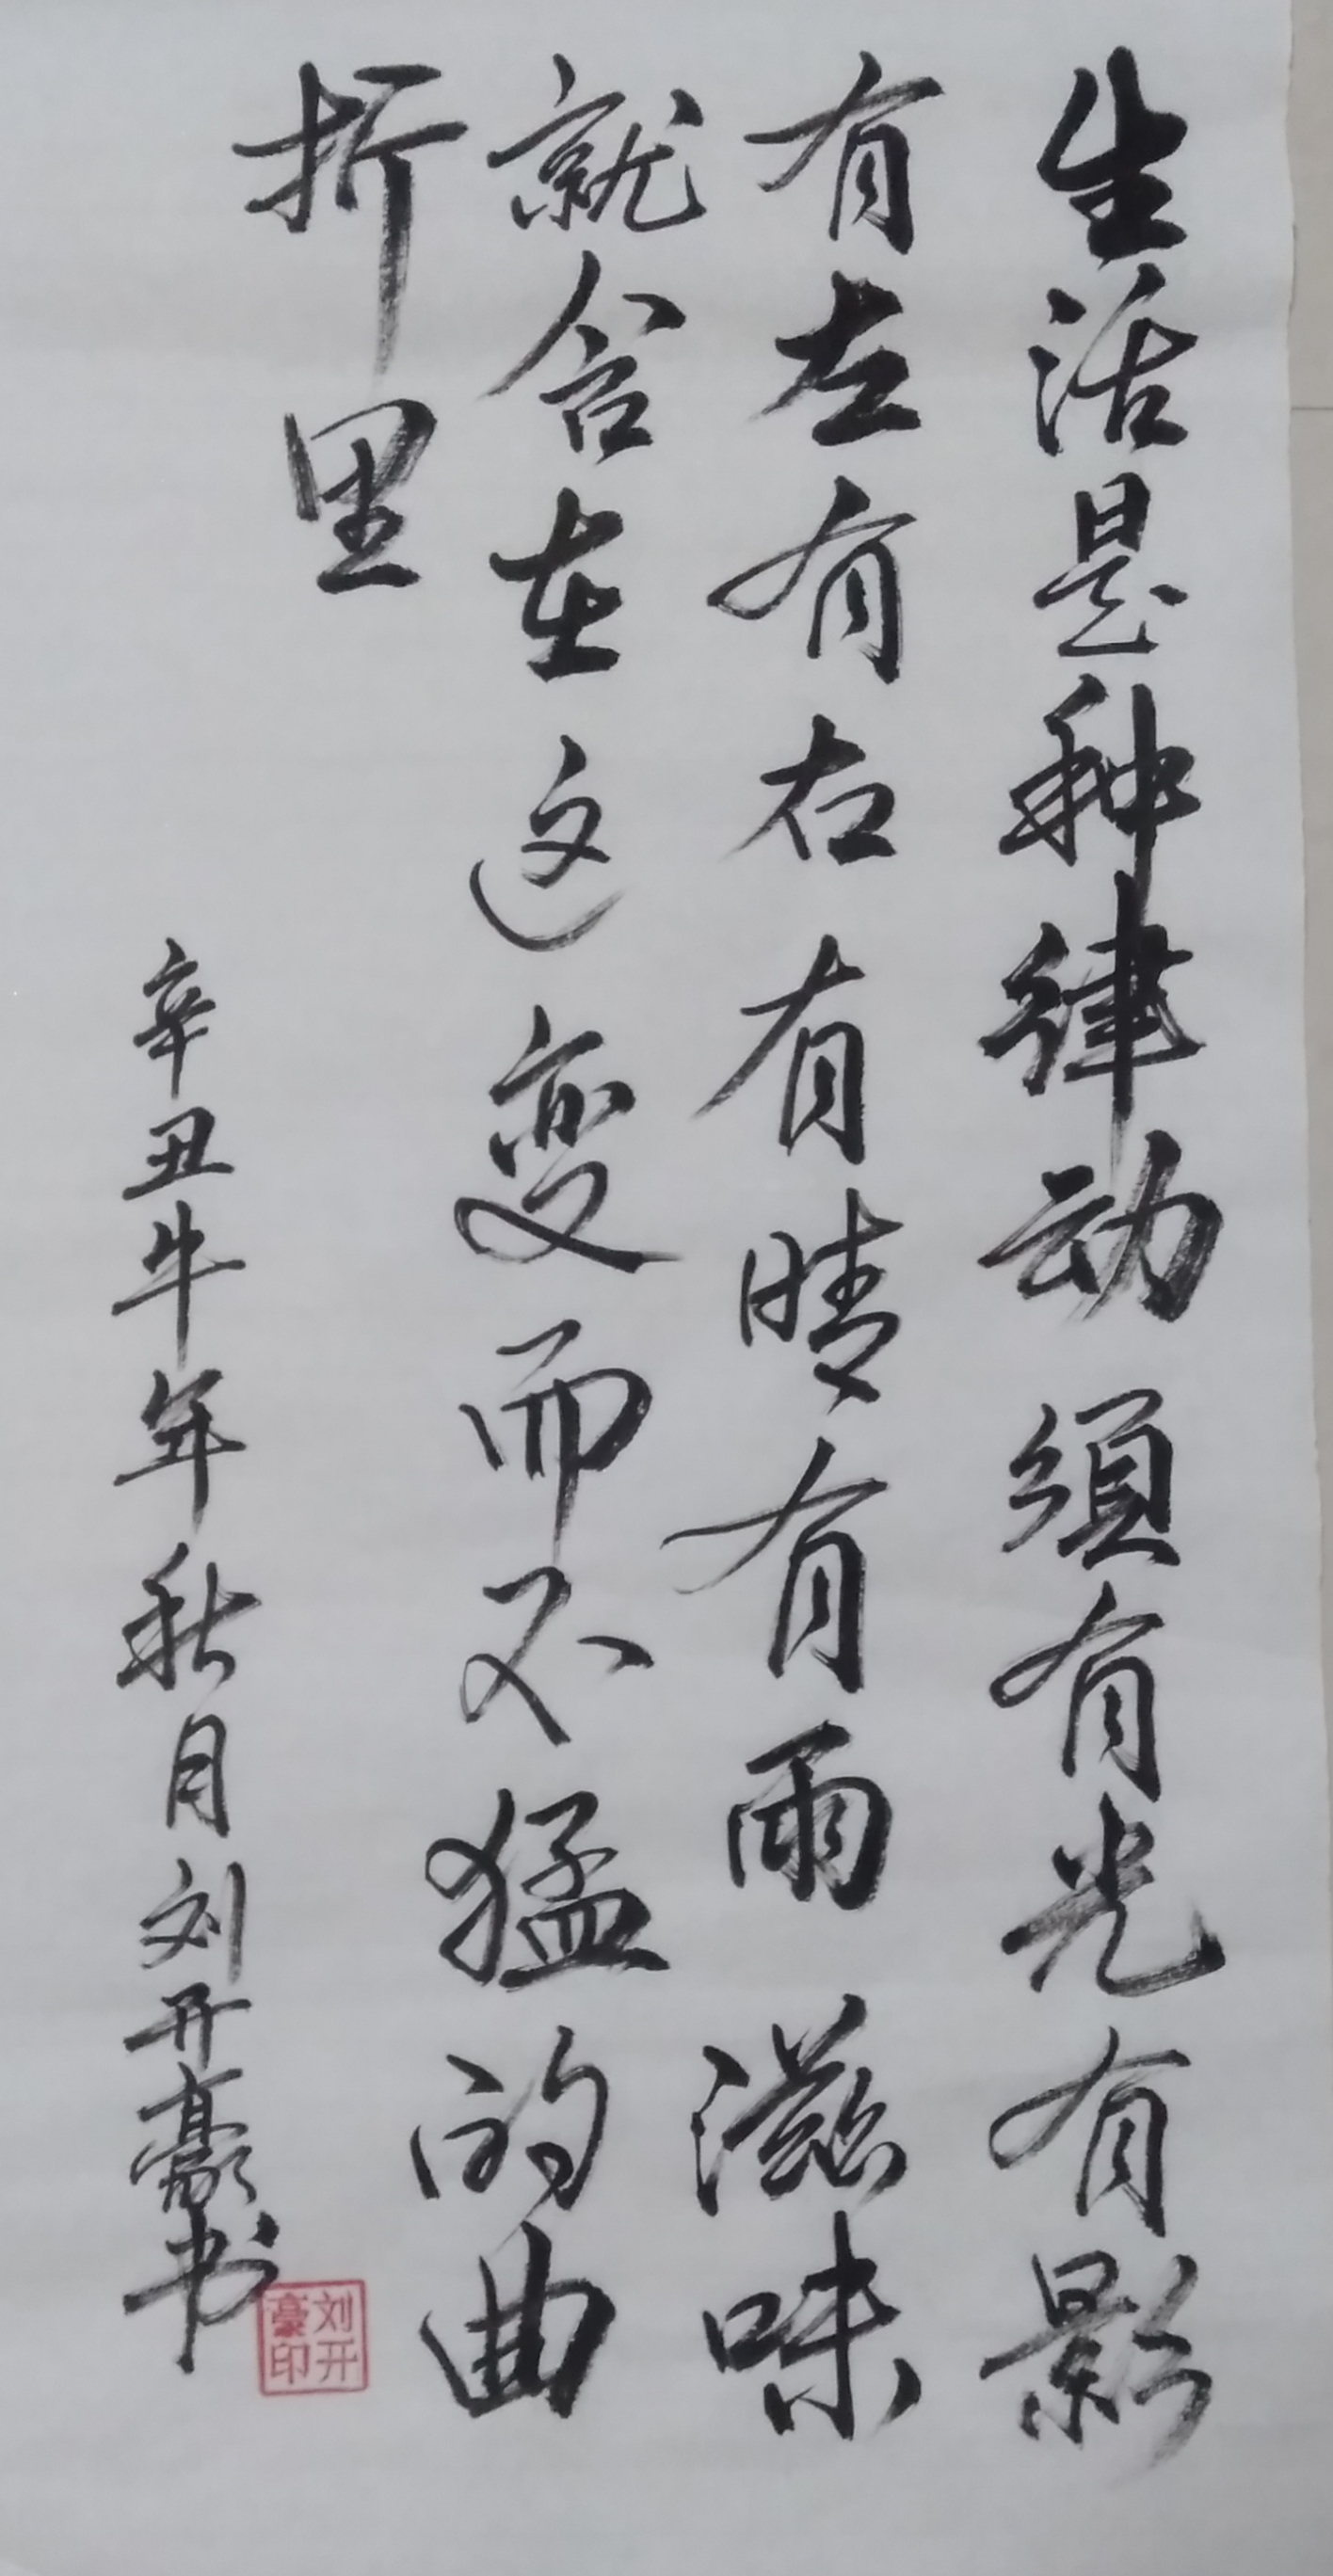 生活是种律动須有光有影
有左有右有晴有雨滋味
就含在这变而不猛的曲
折里
辛丑牛年秋月刘开豪书
刘开豪印